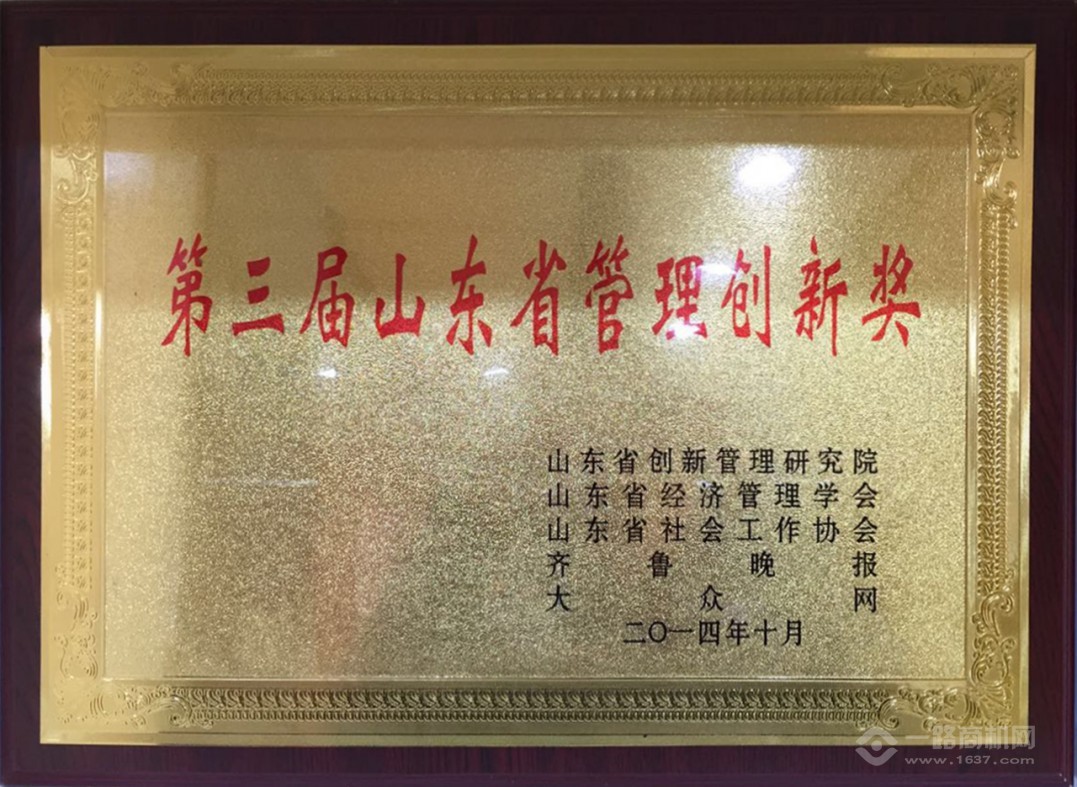 第三届山东省管理创新奖
山东省创新管理研究院
山东省经济管理学会
山东省社会工作协会
齐鲁晚报
大众网
二〇一四年十月
一路商机网
www.1637.com